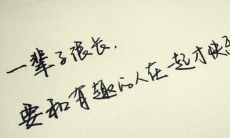 一辈子很长，
要和有趣的人在一起才快